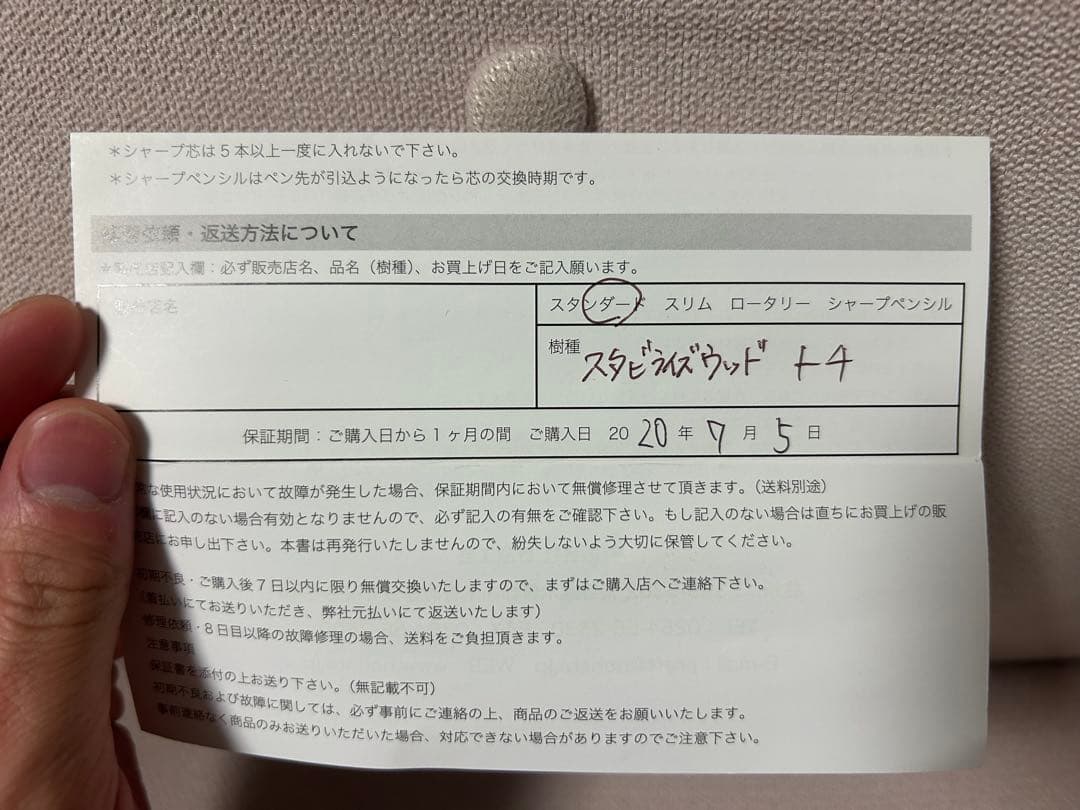 ＊シャープ芯は5本以上一度に入れないで下さい。
＊シャープペンシルはペン先が引込ようになったら芯の交換時期です。
修理依頼・返送方法について
＊販売店記入欄：必ず販売店名、品名（樹種）、お買上げ日をご記入願います。
販売店名
スタンダード　スリム　ロータリー　シャープペンシル
樹種 スタビライズウッド トチ
保証期間：ご購入日から1ヶ月の間　ご購入日　2020年7月5日
な使用状況において故障が発生した場合、保証期間内において無償修理させて頂きます。（送料別途）
に記入のない場合有効となりませんので、必ず記入の有無をご確認下さい。もし記入のない場合は直ちにお買上げの販
店にお申し出下さい。本書は再発行いたしませんので、紛失しないよう大切に保管してください。
初期不良・ご購入後7日以内に限り無償交換いたしますので、まずはご購入店へご連絡下さい。
（着払いにてお送りいただき、弊社元払いにて返送いたします）
修理依頼・8日目以降の故障修理の場合、送料をご負担頂きます。
注意事項
保証書を添付の上お送り下さい。（無記載不可）
初期不良および故障に関しては、必ず事前にご連絡の上、商品のご返送をお願いいたします。
事前連絡なく商品のみお送りいただいた場合、対応できない場合がありますのでご注意下さい。